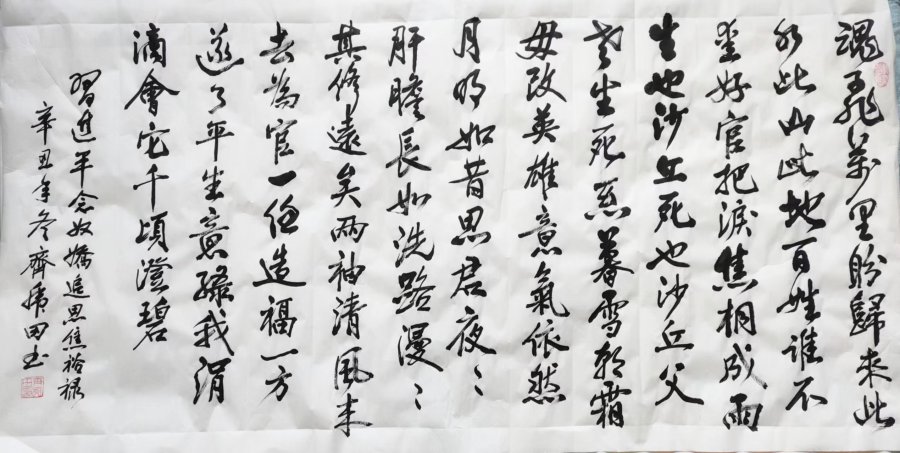 魂飛萬里盼歸来此
水此山此地百姓谁不
愛好官把淚焦桐成雨
生也沙丘死也沙丘父
老生死系暮雪朝霜
毋改英雄意氣依然
月明如昔思君夜〻
肝膽長如洗路漫〻
其修遠矣两袖清風来
去為官一任造福一方
遂了平生意綠我涓
滴會它千頃澄碧
習近平念奴嬌追思焦裕禄
辛丑年冬齊